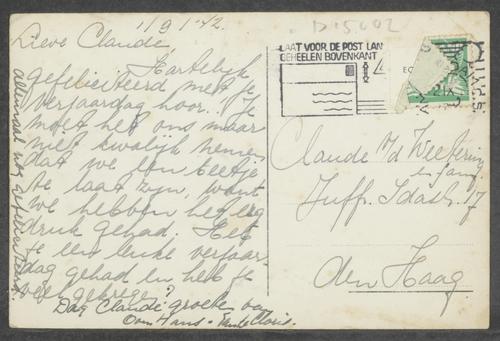 11 9 1. 42.
D-15.602
Lieve Claude,
Hartelijk
gefeliciteerd met je
verjaardag hoor. Je
moet het ons maar
niet kwalijk nemen
dat we een beetje
te laat zijn, want
we hebben het erg
druk gehad. Heb
je een leuke verjaar-
dag gehad en heb je
veel gekregen?
Dag Claude, groeten van
Oom Hans. Tante Cloris.
allemaal nog gefeliciteerd
LAAT VOOR DE POST LAN
GEHEELEN BOVENKANT
Claude v/d Weetering
en fam.
Juffr. Idastr. 17
den Haag